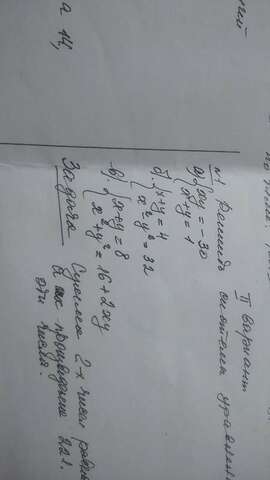 а 14,
II вариант
№1 Решить системы уравнен
а) { xy = -30
x+y = 1
б) { x+y = 4
x²-y² = 32
в) { x+y = 8
x²+y² = 16+2xy
Задача Сумма 2-х чисел равн
а их произведение 221.
эти числа.